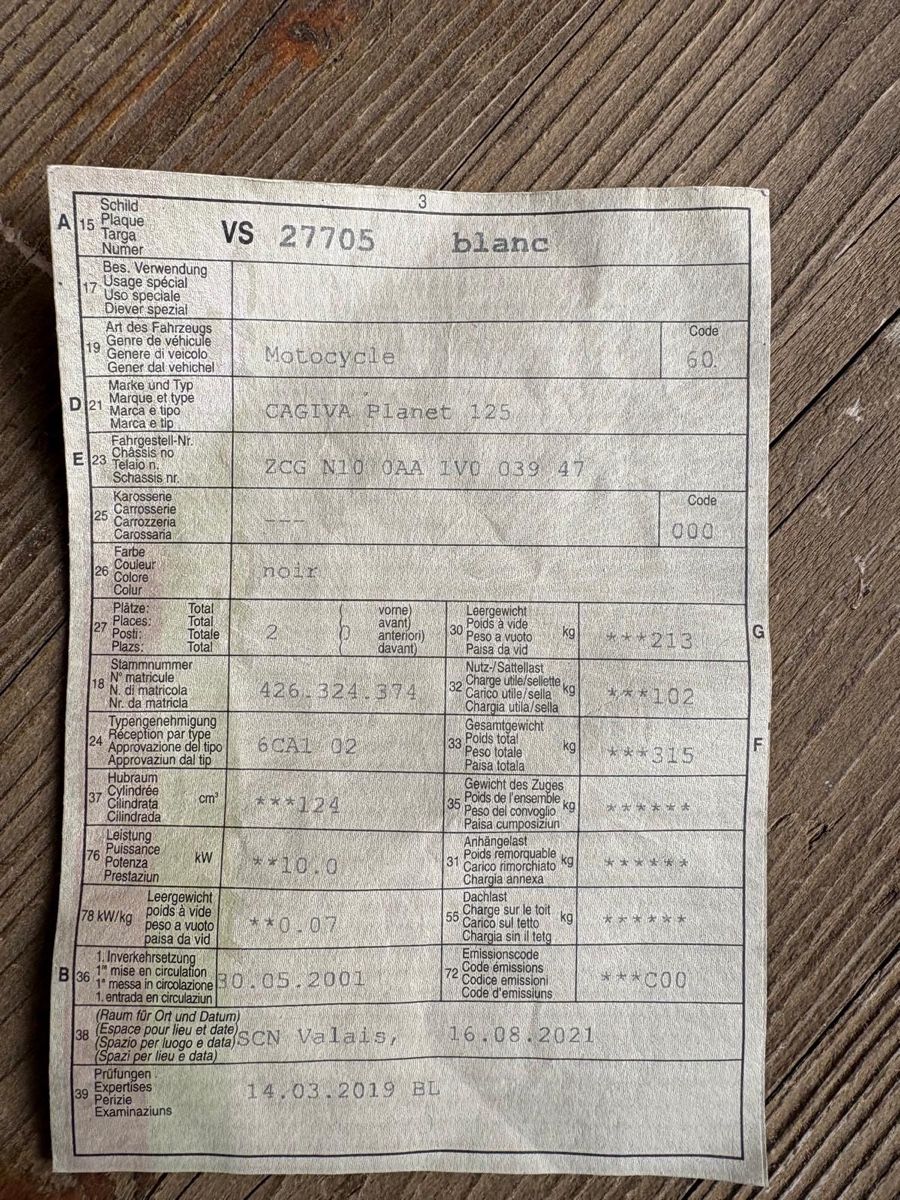 3
A 15 Schild
Plaque
Targa
Numer
VS 27705 blanc
17 Bes. Verwendung
Usage spécial
Uso speciale
Diever spezial
19 Art des Fahrzeugs
Genre de véhicule
Genere di veicolo
Gener dal vehichel
Motocycle
Code
60.
D 21 Marke und Typ
Marque et type
Marca e tipo
Marca e tip
CAGIVA Planet 125
E 23 Fahrgestell-Nr.
Châssis no
Telaio n.
Schassis nr.
ZCG N10 0AA 1V0 039 47
25 Karosserie
Carrosserie
Carrozzeria
Carossaria
---
Code
000
26 Farbe
Couleur
Colore
Colur
noir
27 Plätze: Total
Places: Total
Posti: Totale
Plazs: Total
2 ( vorne)
( avant)
0 anteriori)
( davant)
30 Leergewicht
Poids à vide
Peso a vuoto
Paisa da vid
kg ***213 G
18 Stammnummer
N° matricule
N. di matricola
Nr. da matricla
426.324.374
32 Nutz-/Sattellast
Charge utile/sellette
Carico utile/sella
Chargia utila/sella
kg ***102
24 Typengenehmigung
Réception par type
Approvazione del tipo
Approvaziun dal tip
6CA1 02
33 Gesamtgewicht
Poids total
Peso totale
Paisa totala
kg ***315 F
37 Hubraum
Cylindrée
Cilindrata
Cilindrada
cm³ ***124
35 Gewicht des Zuges
Poids de l'ensemble
Peso del convoglio
Paisa cumposiziun
kg ******
76 Leistung
Puissance
Potenza
Prestaziun
kW **10.0
31 Anhängelast
Poids remorquable
Carico rimorchiato
Chargia annexa
kg ******
78 kW/kg Leergewicht
poids à vide
peso a vuoto
paisa da vid
**0.07
55 Dachlast
Charge sur le toit
Carico sul tetto
Chargia sin il tetg
kg ******
B 36 1. Inverkehrsetzung
1re mise en circulation
1a messa in circolazione
1. entrada en circulaziun
30.05.2001
72 Emissionscode
Code émissions
Codice emissioni
Code d'emissiuns
***C00
38 (Raum für Ort und Datum)
(Espace pour lieu et date)
(Spazio per luogo e data)
(Spazi per lieu e data)
SCN Valais, 16.08.2021
39 Prüfungen
Expertises
Perizie
Examinaziuns
14.03.2019 BL